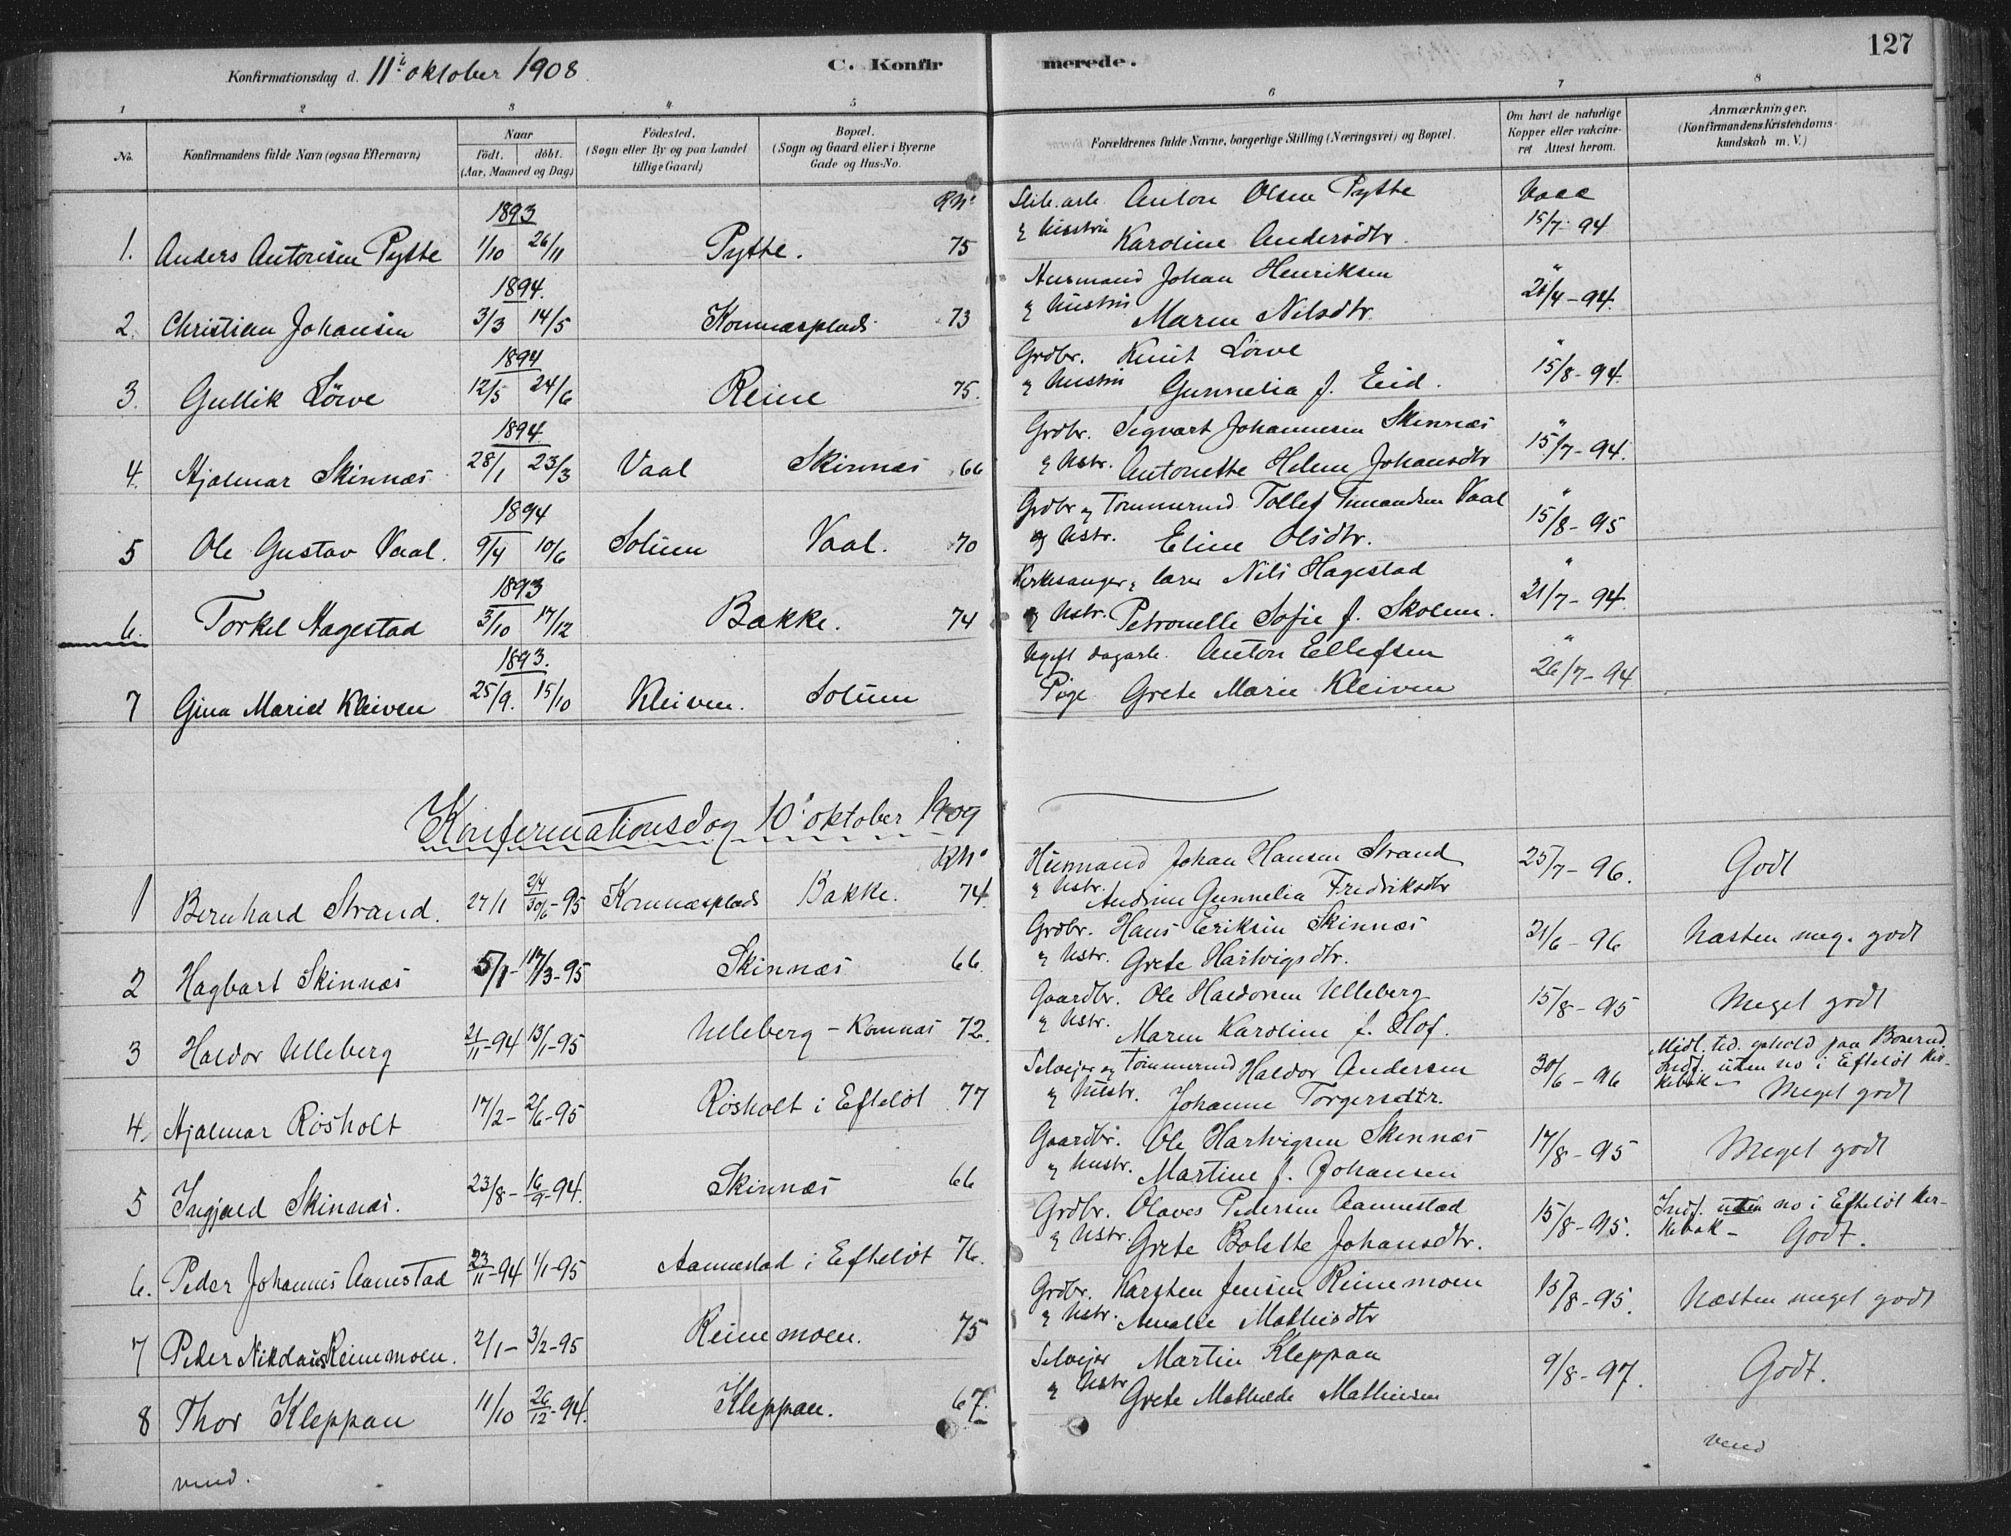 127
Konfirmationsdag d. 11te oktober 1908. C. Konfirmerede.
1 2 3 4 5 6 7 8
No. Konfirmandens fulde Navn (ogsaa Efternavn) Naar født. døbt. (Aar, Maaned og Dag) Fødested. (Sogn eller By og paa Landet tillige Gaard) Bopæl. (Sogn og Gaard eller i Byerne Gade og Hus-No. Forældrenes fulde Navne, borgerlige Stilling (Næringsvei) og Bopæl. Om havt de naturlige Kopper eller vakcineret. Attest herom. Anmærkninger. (Konfirmandens Kristendomskundskab m. V.)
1893 Anton Olsen Pytte Vacc
1. Anders Antonsen Pytte 1/10 26/11 Pytte. 75 & hustru Karoline Andersdtr. 15/7-94
1894. Husmand Johan Henriksen "
2. Christian Johansen 3/3 14/5 Komnæsplads 73 & hustru Maren Nilsdtr. 21/4-94.
1894 Grdbr. Knut Löve "
3. Gullik Löve 12/5 24/6 Reine 75. & hustru Gunnelia f. Eid. 15/8-94.
1894 Grdbr. Sigvart Johannesen Skinnæs "
4. Hjalmar Skinnæs 28/1 23/3 Vaal Skinnæs 66 & hstr. Antonette Helene Johansdtr 15/7-94.
1894 Grdbr & Tømmermd Tollef Vaal "
5 Ole Gustav Vaal. 9/4 10/6 Solum Vaal. 70 & hstr. Eline Olsdtr. 15/8-95
1893 Kirkesanger & lærer Nils Hagestad "
6. Torkel Hagestad 3/10 17/12 Bakke. 74 & hstr. Petronelle Sofie f. Skolem. 21/7-94.
1893. Ugift dagarb. Anton Ellefsen "
7 Gina Marie Kleiven 25/9. 15/10 Kleiven. Solum Pige Grete Marie Kleiven 26/7-94
Konfirmationsdag 10. oktober 1909
Husmand Johan Hansen Strand
1 Bernhard Strand. 27/1 30/6-95 Komnæsplads Bakke. 74. & hstr. Andrine Gunnelia Fredriksdtr 25/7-96. Godt
Grdbr. Hans Eriksen Skinnæs
2 Hagbart Skinnæs 5/1- 17/3-95 Skinnæs 66. & hstr. Grete Hartvigsdtr. 21/6-96 Næsten meg. godt
Gaardbr. Ole Haldorsen Ulleberg
3 Haldor Ulleberg 21/11-94 13/1-95 Ulleberg - Komnæs 72. & hstr. Maren Karoline f. Olof. 15/8-95 Meget godt
Selveier og Tømmermd Haldor Andersen Midl. tid. ophold paa
4. Hjalmar Rösholt 17/2- 2/6-95 Rösholt i Eftelöt 77 & hustr. Johanne Torgersdtr. 30/6-96 Indf. uden no i Eftelöt Kirkebok - Meget godt
Gaardbr. Ole Hartvigsen Skinnæs
5 Ingjald Skinnæs. 23/8- 16/9-94. Skinnæs 66 & hustr. Martine f. Johansen 17/8-95 Meget godt
Grdbr. Olaves Pedersen Aannestad Indf. uden no i Eftelöt Kir-
6. Peder Johannes Aanestad 23/11-94 1/1-95 Aannestad i Eftelöt 76. & hstr. Grete Bolette Johansdtr. 15/8-95. kebok - Godt.
Grdbr. Karsten Jensen Reinemoen
7 Peder Nikolaus Reinemoen. 2/1- 3/2-95 Reinemoen. 75 & hstr. Amalie Mathisdtr 15/8-95. Næsten meget godt
Selveier Martin Kleppan
8 Thor Kleppan 11/10 26/12-94. Kleppan. 67. & hstr Grete Mathilde Mathiesen 9/8-97. Godt.
vend. vend